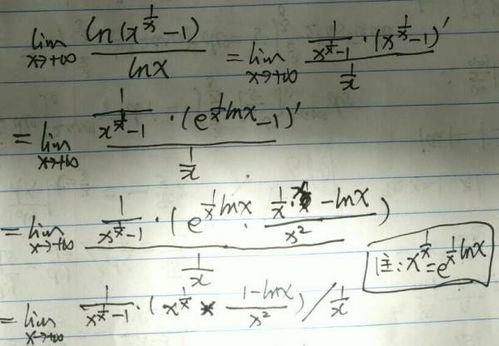 lim x→+∞ ln(x^{1/x}-1) / lnx = lim x→+∞ (1/(x^{1/x}-1) · (x^{1/x}-1)') / (1/x)
= lim x→+∞ (1/(x^{1/x}-1) · (e^{1/x lnx}-1)') / (1/x)
= lim x→+∞ (1/(x^{1/x}-1) · (e^{1/x lnx} · (1/x·x - lnx)/x²)) / (1/x)
注: x^{1/x}=e^{1/x lnx}
= lim x→+∞ 1/(x^{1/x}-1) · (x^{1/x} * (1-lnx)/x²) / (1/x)